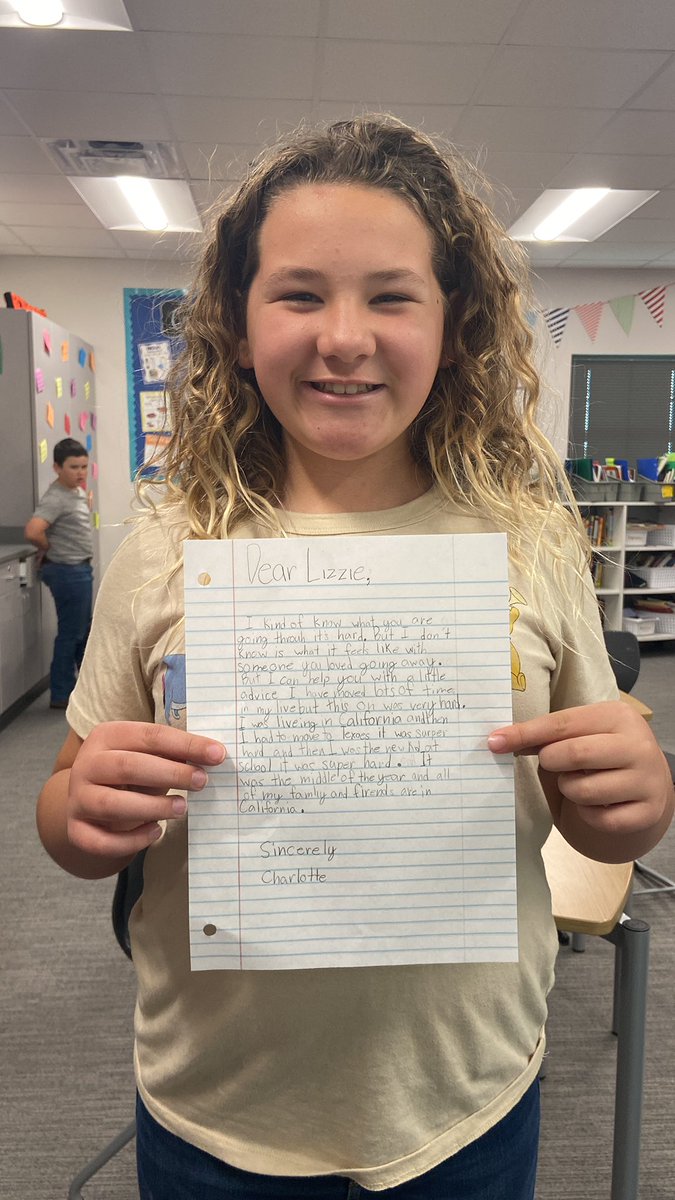 Dear Lizzie,
I kind of know what you are
going throuh it's hard. But I don't
know is what it feels like with
someone you loved going away.
But I can help you with a little
advice I have moved lots of time
in my live but this on was very hard.
I was liveing in California and then
I had to move to texoes it was surper
hard and then I was the new kid at
school it was super hard. It
was the middle of the year and all
of my family and firends are in
California.
Sincerely
Charlotte